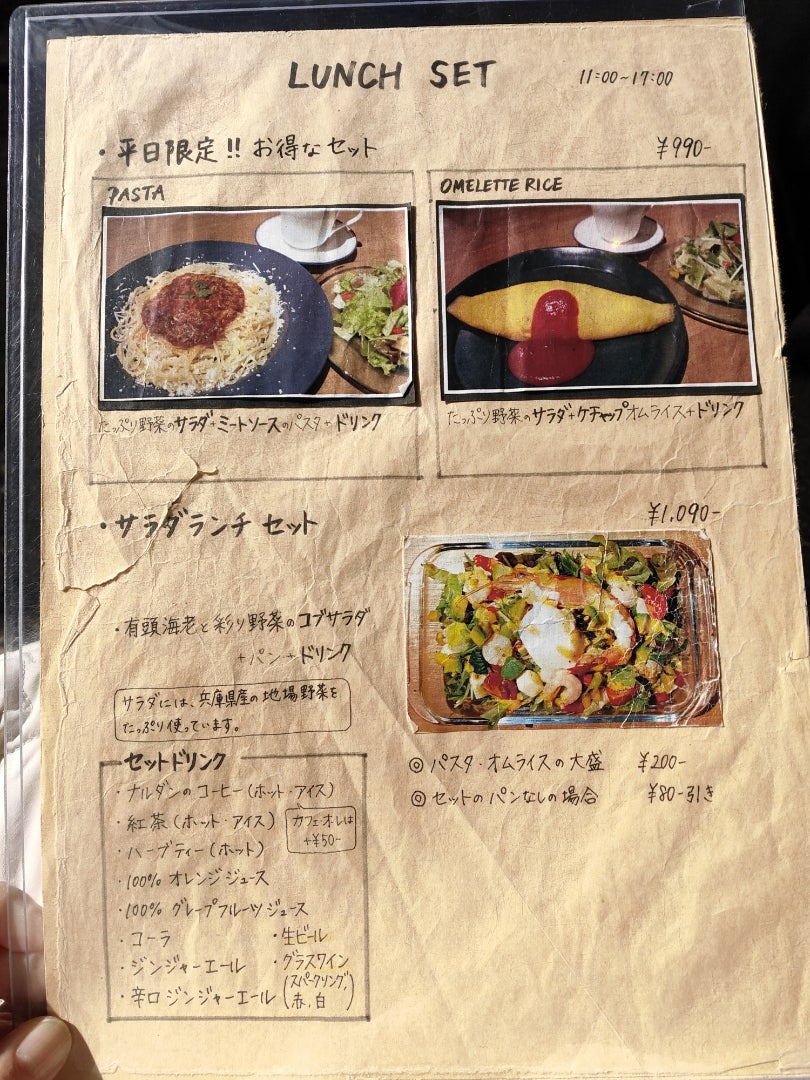 LUNCH SET 11:00~17:00
・平日限定!! お得なセット ¥990-
PASTA
OMELETTE RICE
たっぷり野菜のサラダ+ミートソースのパスタ+ドリンク
たっぷり野菜のサラダ+ケチャップオムライス+ドリンク
・サラダランチ セット ¥1,090-
・有頭海老と彩り野菜のコブサラダ
+パン+ドリンク
サラダには、兵庫県産の地場野菜を
たっぷり使っています。
◎パスタ・オムライスの大盛 ¥200-
◎セットのパンなしの場合 ¥80-引き
セットドリンク
・ナルダンのコーヒー(ホット・アイス)
・紅茶(ホット・アイス)
カフェオレは
+¥50-
・ハーブティー(ホット)
・100% オレンジジュース
・100% グレープフルーツジュース
・コーラ
・ジンジャーエール
・辛口ジンジャーエール
・生ビール
・グラスワイン
(スパークリング,
赤,白)